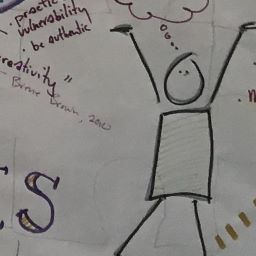 practice
vulnerability
be authentic
creativity"
- Brene Brown, 2010
S